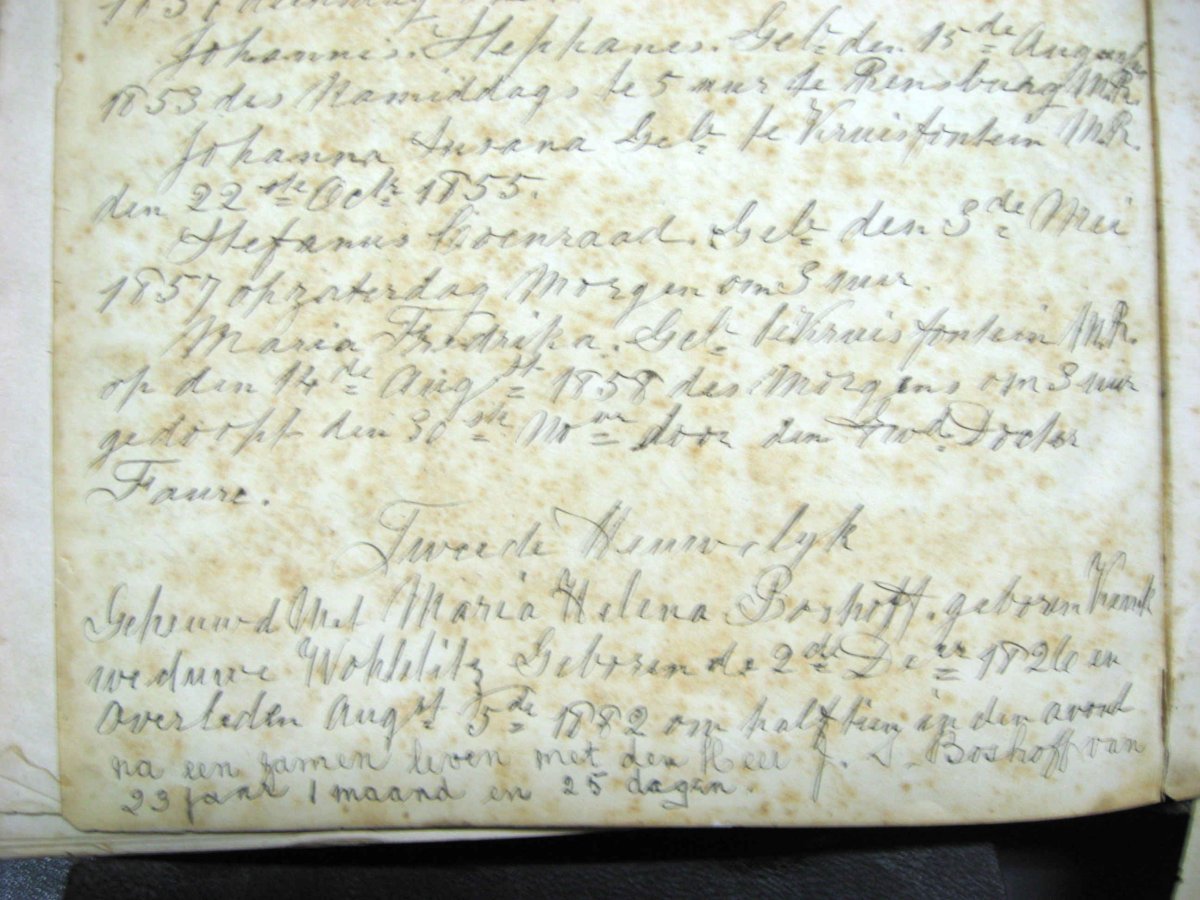 Johannis. Stephanes. Geb^r den 15^de August
1853 des Namiddags te 5 uur te Rensburg M.R.
Johanna Susana Geb^r te Kruisfontein M.R.
den 22^ste Oct^r 1855.
Stefanus Coenraad. Geb^r den 3^de Mei
1857 op zaterdag Morgen om 3 uur.
Maria Fredrika. Geb^r te Kruisfontein M.R.
op den 14^de Aug^st 1858 des Morgens om 3 uur
gedoopt den 30^ste No^ver door den Docter
Faure.
Tweede Heuwelyk
Geheuwd Met Maria Helena Boshoff. geboren
weduwe Wohlitz Geboren de 2^de De^er 1826 en
overleden Aug^st 5^de 1882 om half tien in den avont
na een zamen leven met den Heer J. S. Boshoff van
23 jaar 1 maand en 25 dagen.